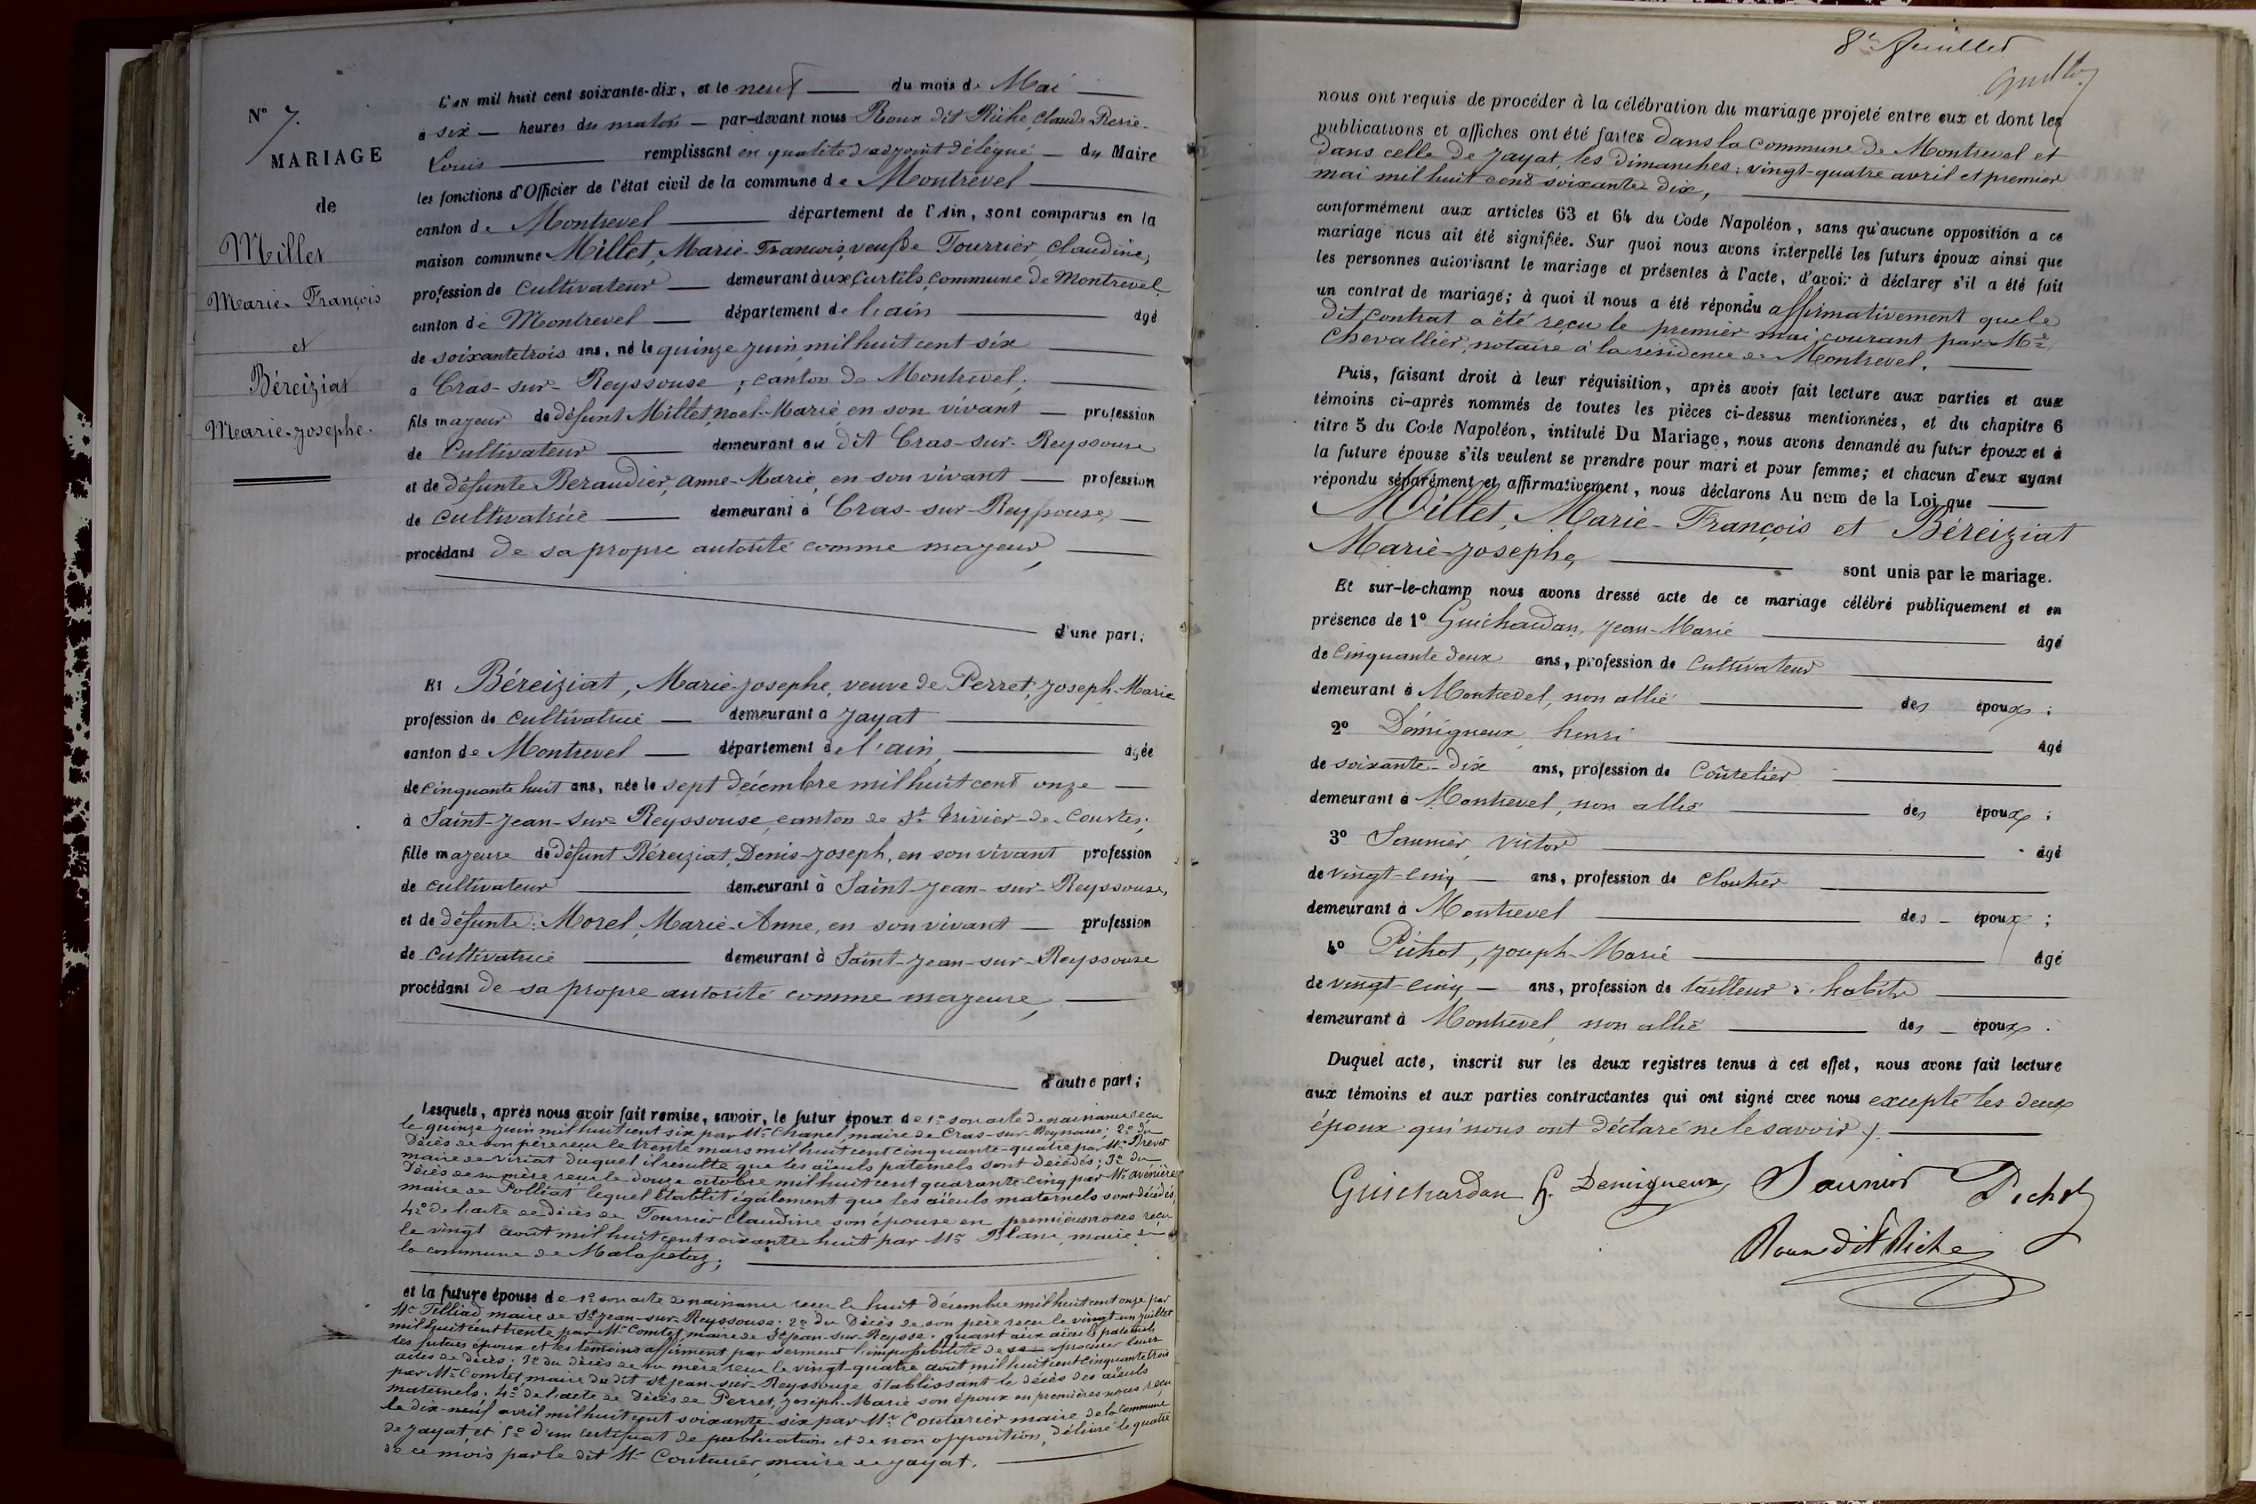 N° 7.
MARIAGE
de
Millet
Marie-François
et
Béreiziat
Marie-Josephe.
L'an mil huit cent soixante-dix, et le neuf du mois de Mai
à six heures du matin par-devant nous Roux dit Riche, Claude Pierre-
Louis remplissant en qualité d'adjoint délégué du Maire
les fonctions d'Officier de l'état civil de la commune de Montrevel
canton de Montrevel département de l'Ain, sont comparus en la
maison commune Millet, Marie-François, veuf de Tourrier, Claudine,
profession de cultivateur demeurant aux Curtils, commune de Montrevel,
canton de Montrevel département de l'ain âgé
de soixante trois ans, né le quinze juin mil huit cent six
à Cras-sur-Reyssouse, canton de Montrevel,
fils majeur de défunt Millet, Noel-Marie, en son vivant profession
de Cultivateur demeurant au dit Cras-sur-Reyssouse
et de défunte Beraudier, Anne-Marie, en son vivant profession
de cultivatrice demeurant à Cras-sur-Reyssouse,
procédant de sa propre autorité comme majeur,
d'une part;
Et Béreiziat, Marie-Josephe, veuve de Perret, Joseph-Marie
profession de cultivatrice demeurant à Jayat
canton de Montrevel département de l'ain, âgée
de cinquante huit ans, née le sept décembre mil huit cent onze
à Saint-Jean-sur-Reyssouse, canton de St Trivier-de-Courtes;
fille majeure de défunt Béreiziat, Denis-Joseph, en son vivant profession
de cultivateur demeurant à Saint-Jean-sur-Reyssouse,
et de défunte: Morel, Marie-Anne, en son vivant profession
de cultivatrice demeurant à Saint-Jean-sur-Reyssouse
procédant de sa propre autorité comme majeure,
d'autre part;
Lesquels, après nous avoir fait remise, savoir, le futur époux de 1° son acte de naissance reçu
le quinze juin mil huit cent six par Mr Chanel, maire de Cras-sur-Reyssouse; 2° du
décès de son père reçu le trente mars mil huit cent cinquante-quatre par Mr
maire de Viriat duquel il résulte que les aïeuls paternels sont décédés; 3° du
décès de sa mère reçu le douze octobre mil huit cent quarante-cinq par Mr
maire de Polliat lequel établit également que les aïeuls maternels sont décédés
4° de l'acte de décès de Tourrier Claudine son épouse en premières noces reçu
le vingt août mil huit cent soixante huit par Mr Blanc, maire de
la commune de Malafretaz;
et la future épouse de 1° son acte de naissance reçu le huit décembre mil huit cent onze par
Mr Tilliad, maire de St Jean-sur-Reyssouse. 2° du Décès de son père reçu le vingt-un juillet
mil huit cent trente par Mr Comtet maire de St Jean-sur-Reysse. quant aux aïeuls paternels
les futurs époux et les témoins affirment par serment l'impossibilité de se procurer leurs
actes de décès; 3° du décès de sa mère reçu le vingt-quatre août mil huit cent cinquante trois
par Mr Comtet maire du dit St Jean-sur-Reyssouze établissant le décès des aïeuls
maternels. 4° de l'acte de Décès de Perret, Joseph-Marie son époux en premières noces reçu
le dix-neuf avril mil huit cent soixante-six par Mr Couturier maire de la commune
de Jayat, et 5° d'un certificat de publication et de non opposition, délivré le quatre
de ce mois par le dit Mr Couturier, maire de Jayat.
8e feuillet
nous ont requis de procéder à la célébration du mariage projeté entre eux et dont les
publications et affiches ont été faites dans la commune de Montrevel et
dans celle de Jayat, les dimanches: vingt-quatre avril et premier
mai mil huit cent soixante-dix,
conformément aux articles 63 et 64 du Code Napoléon, sans qu'aucune opposition a ce
mariage nous ait été signifiée. Sur quoi nous avons interpellé les futurs époux ainsi que
les personnes autorisant le mariage et présentes à l'acte, d'avoir à déclarer s'il a été fait
un contrat de mariage; à quoi il nous a été répondu affirmativement que le
dit contrat a été reçu le premier mai courant par Me
Chevallier, notaire à la résidence de Montrevel.
Puis, faisant droit à leur réquisition, après avoir fait lecture aux parties et aux
témoins ci-après nommés de toutes les pièces ci-dessus mentionnées, et du chapitre 6
titre 5 du Code Napoléon, intitulé Du Mariage, nous avons demandé au futur époux et à
la future épouse s'ils veulent se prendre pour mari et pour femme; et chacun d'eux ayant
répondu séparément et affirmativement, nous déclarons Au nom de la Loi que
Millet, Marie-François et Béreiziat
Marie-Josephe, sont unis par le mariage.
Et sur-le-champ nous avons dressé acte de ce mariage célébré publiquement et en
présence de 1° Guichardan, Jean-Marie âgé
de cinquante deux ans, profession de Cultivateur
demeurant à Montrevel, non allié des époux;
2° Démigneux, henri âgé
de soixante-dix ans, profession de Coûtelier
demeurant à Montrevel, non allié des époux;
3° Saunier, Victor âgé
de vingt-cinq ans, profession de cloutier
demeurant à Montrevel des époux;
4° Pichot, Joseph-Marie âgé
de vingt-cinq ans, profession de tailleur d'habits
demeurant à Montrevel, non allié des époux.
Duquel acte, inscrit sur les deux registres tenus à cet effet, nous avons fait lecture
aux témoins et aux parties contractantes qui ont signé avec nous excepté les deux
époux qui nous ont déclaré ne le savoir.
Guichardan h. Demigneux Saunier Pichot
Roux dit Riche